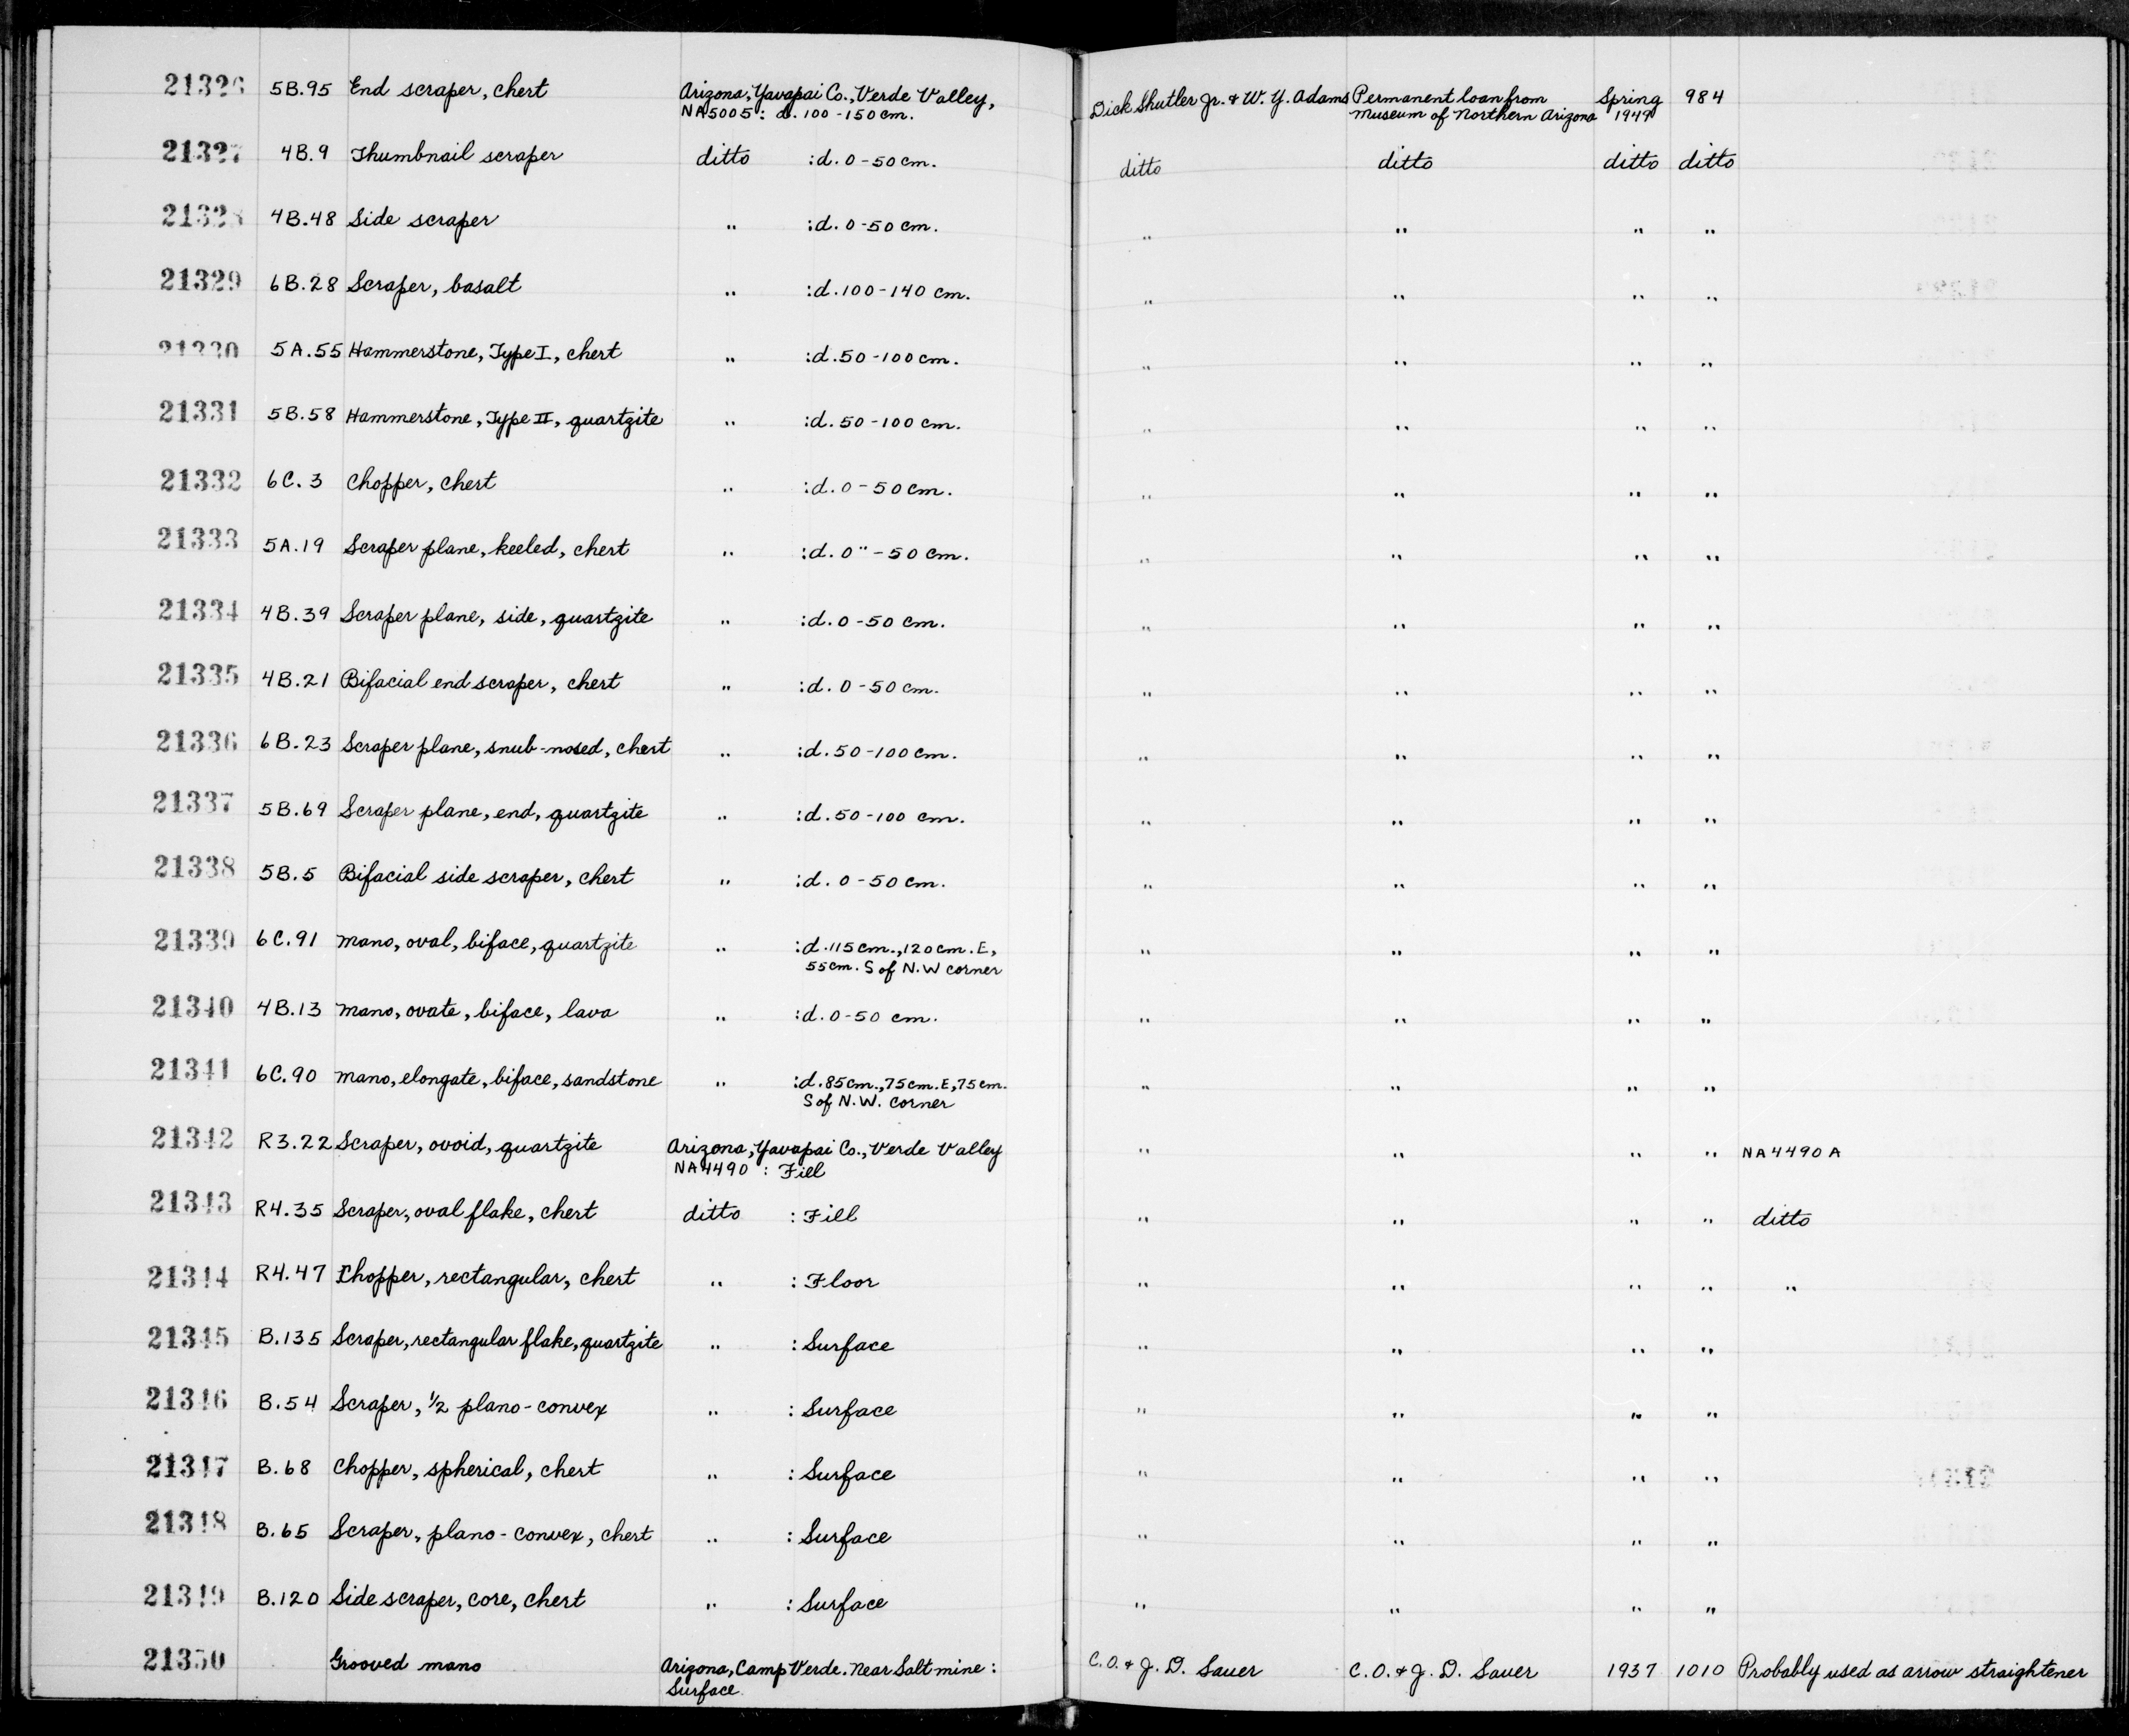 21326 5B.95 End scraper, chert Arizona, Yavapai Co., Verde Valley, Dick Shutler Jr. & W. Y. Adams Permanent loan from Spring 984
NA5005: d. 100-150 cm. Museum of Northern Arizona 1949
21327 4B.9 Thumbnail scraper ditto :d. 0-50 cm. ditto ditto ditto ditto
21328 4B.48 Side scraper " :d. 0-50 cm. " " " "
21329 6B.28 Scraper, basalt " :d. 100-140 cm. " " " "
21330 5A.55 Hammerstone, Type I, chert " :d. 50-100 cm. " " " "
21331 5B.58 Hammerstone, Type II, quartzite " :d. 50-100 cm. " " " "
21332 6C.3 Chopper, chert " :d. 0-50 cm. " " " "
21333 5A.19 Scraper plane, keeled, chert " :d. 0"-50 cm. " " " "
21334 4B.39 Scraper plane, side, quartzite " :d. 0-50 cm. " " " "
21335 4B.21 Bifacial end scraper, chert " :d. 0-50 cm. " " " "
21336 6B.23 Scraper plane, snub-nosed, chert " :d. 50-100 cm. " " " "
21337 5B.69 Scraper plane, end, quartzite " :d. 50-100 cm. " " " "
21338 5B.5 Bifacial side scraper, chert " :d. 0-50 cm. " " " "
21339 6C.91 Mano, oval, biface, quartzite " :d. 115 cm., 120 cm. E, " " " "
55 cm. S of N.W corner
21340 4B.13 Mano, ovate, biface, lava " :d. 0-50 cm. " " " "
21341 6C.90 Mano, elongate, biface, sandstone " :d. 85 cm., 75 cm. E, 75 cm. " " " "
S of N.W. corner
21342 R3.22 Scraper, ovoid, quartzite Arizona, Yavapai Co., Verde Valley " " " " NA4490A
NA4490 : Fill
21343 R4.35 Scraper, oval flake, chert ditto : Fill " " " " ditto
21344 R4.47 Chopper, rectangular, chert " : Floor " " " " "
21345 B.135 Scraper, rectangular flake, quartzite " : Surface " " " "
21346 B.54 Scraper, 1/2 plano-convex " : Surface " " " "
21347 B.68 Chopper, spherical, chert " : Surface " " " "
21348 B.65 Scraper, plano-convex, chert " : Surface " " " "
21349 B.120 Side scraper, core, chert " : Surface " " " "
21350 Grooved mano Arizona, Camp Verde. Near Salt mine : C.O. & J. D. Sauer C.O. & J. D. Sauer 1937 1010 Probably used as arrow straightener
Surface